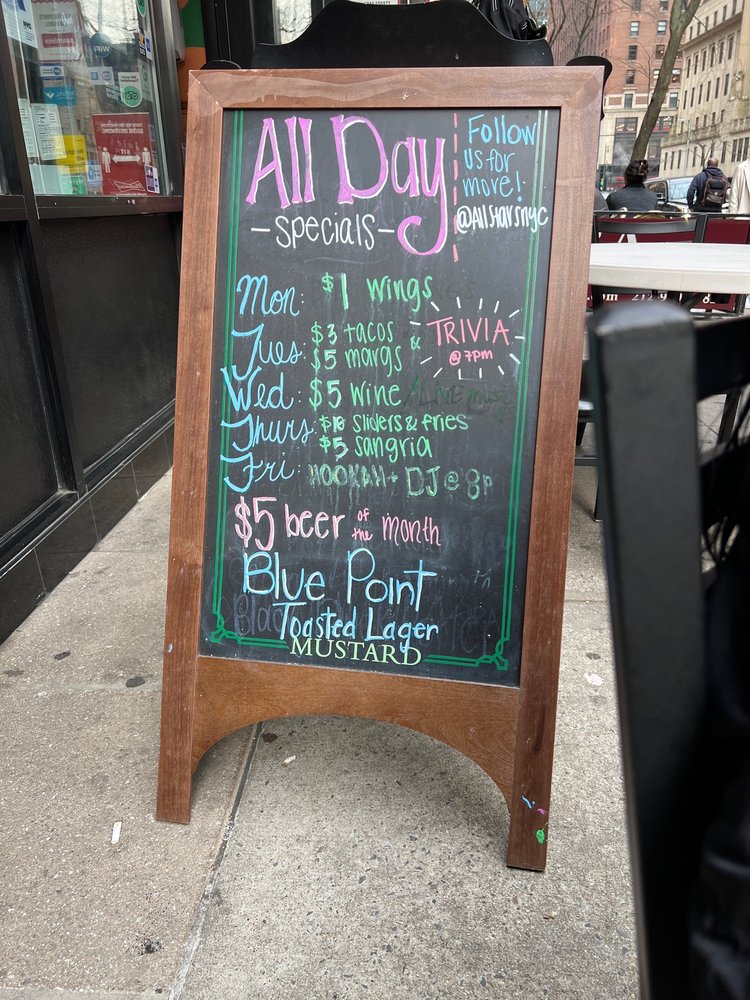 All Day
- specials -
Follow
us for
more!
@Allstarsnyc
Mon: $1 wings
Tues: $3 tacos
$5 margs & TRIVIA
@ 7pm
Wed: $5 wine / LIVE music
Thurs: $10 sliders & fries
$5 sangria
Fri: HOOKAH + DJ @ 8p
$5 beer of the month
Blue Point
Toasted Lager
MUSTARD
WIFI